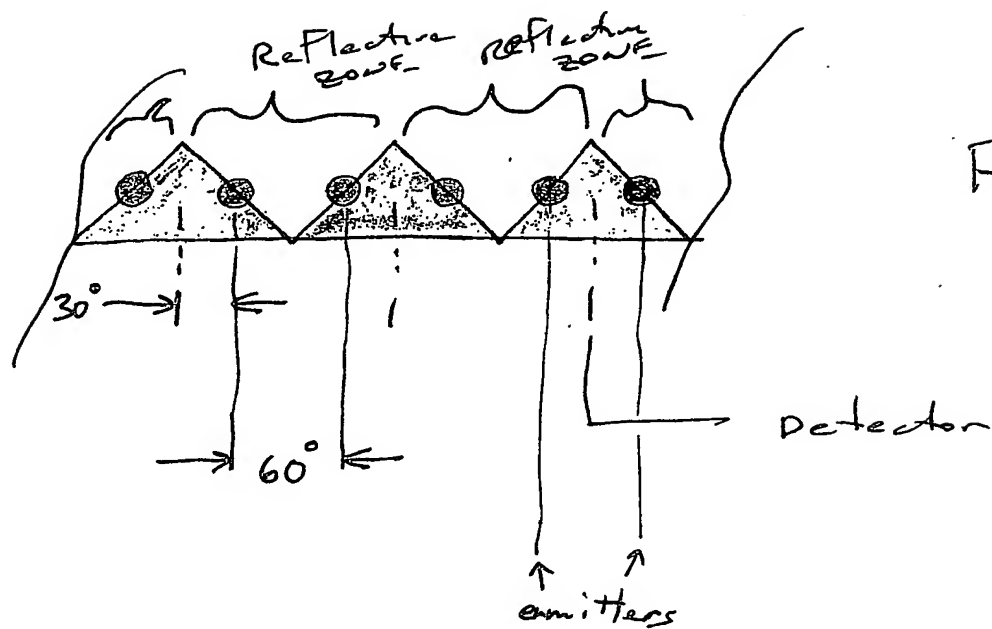 Reflective
ZONE
Reflective
ZONE
F
30°
60°
Detector
emitters